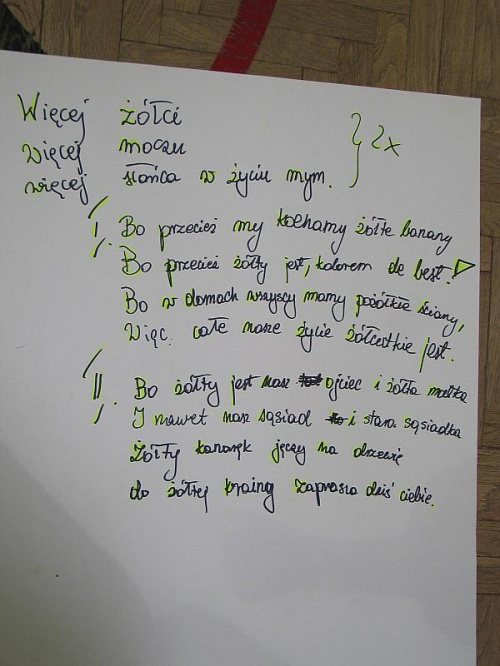 Więcej żółci } 2x
więcej moczu
więcej słońca w życiu mym.
I. Bo przecież my kochamy żółte banany
Bo przecież żółty jest, kolorem de best!
Bo w domach wszyscy mamy pożółkłe ściany,
Więc. całe nasze życie żółciutkie jest.
II. Bo żółty jest nasz ojciec i żółta matka
I nawet nasz sąsiad i stara sąsiadka
Żółty kanarek jęczy na drzewie
do żółtej krainy zaprasza dziś ciebie.